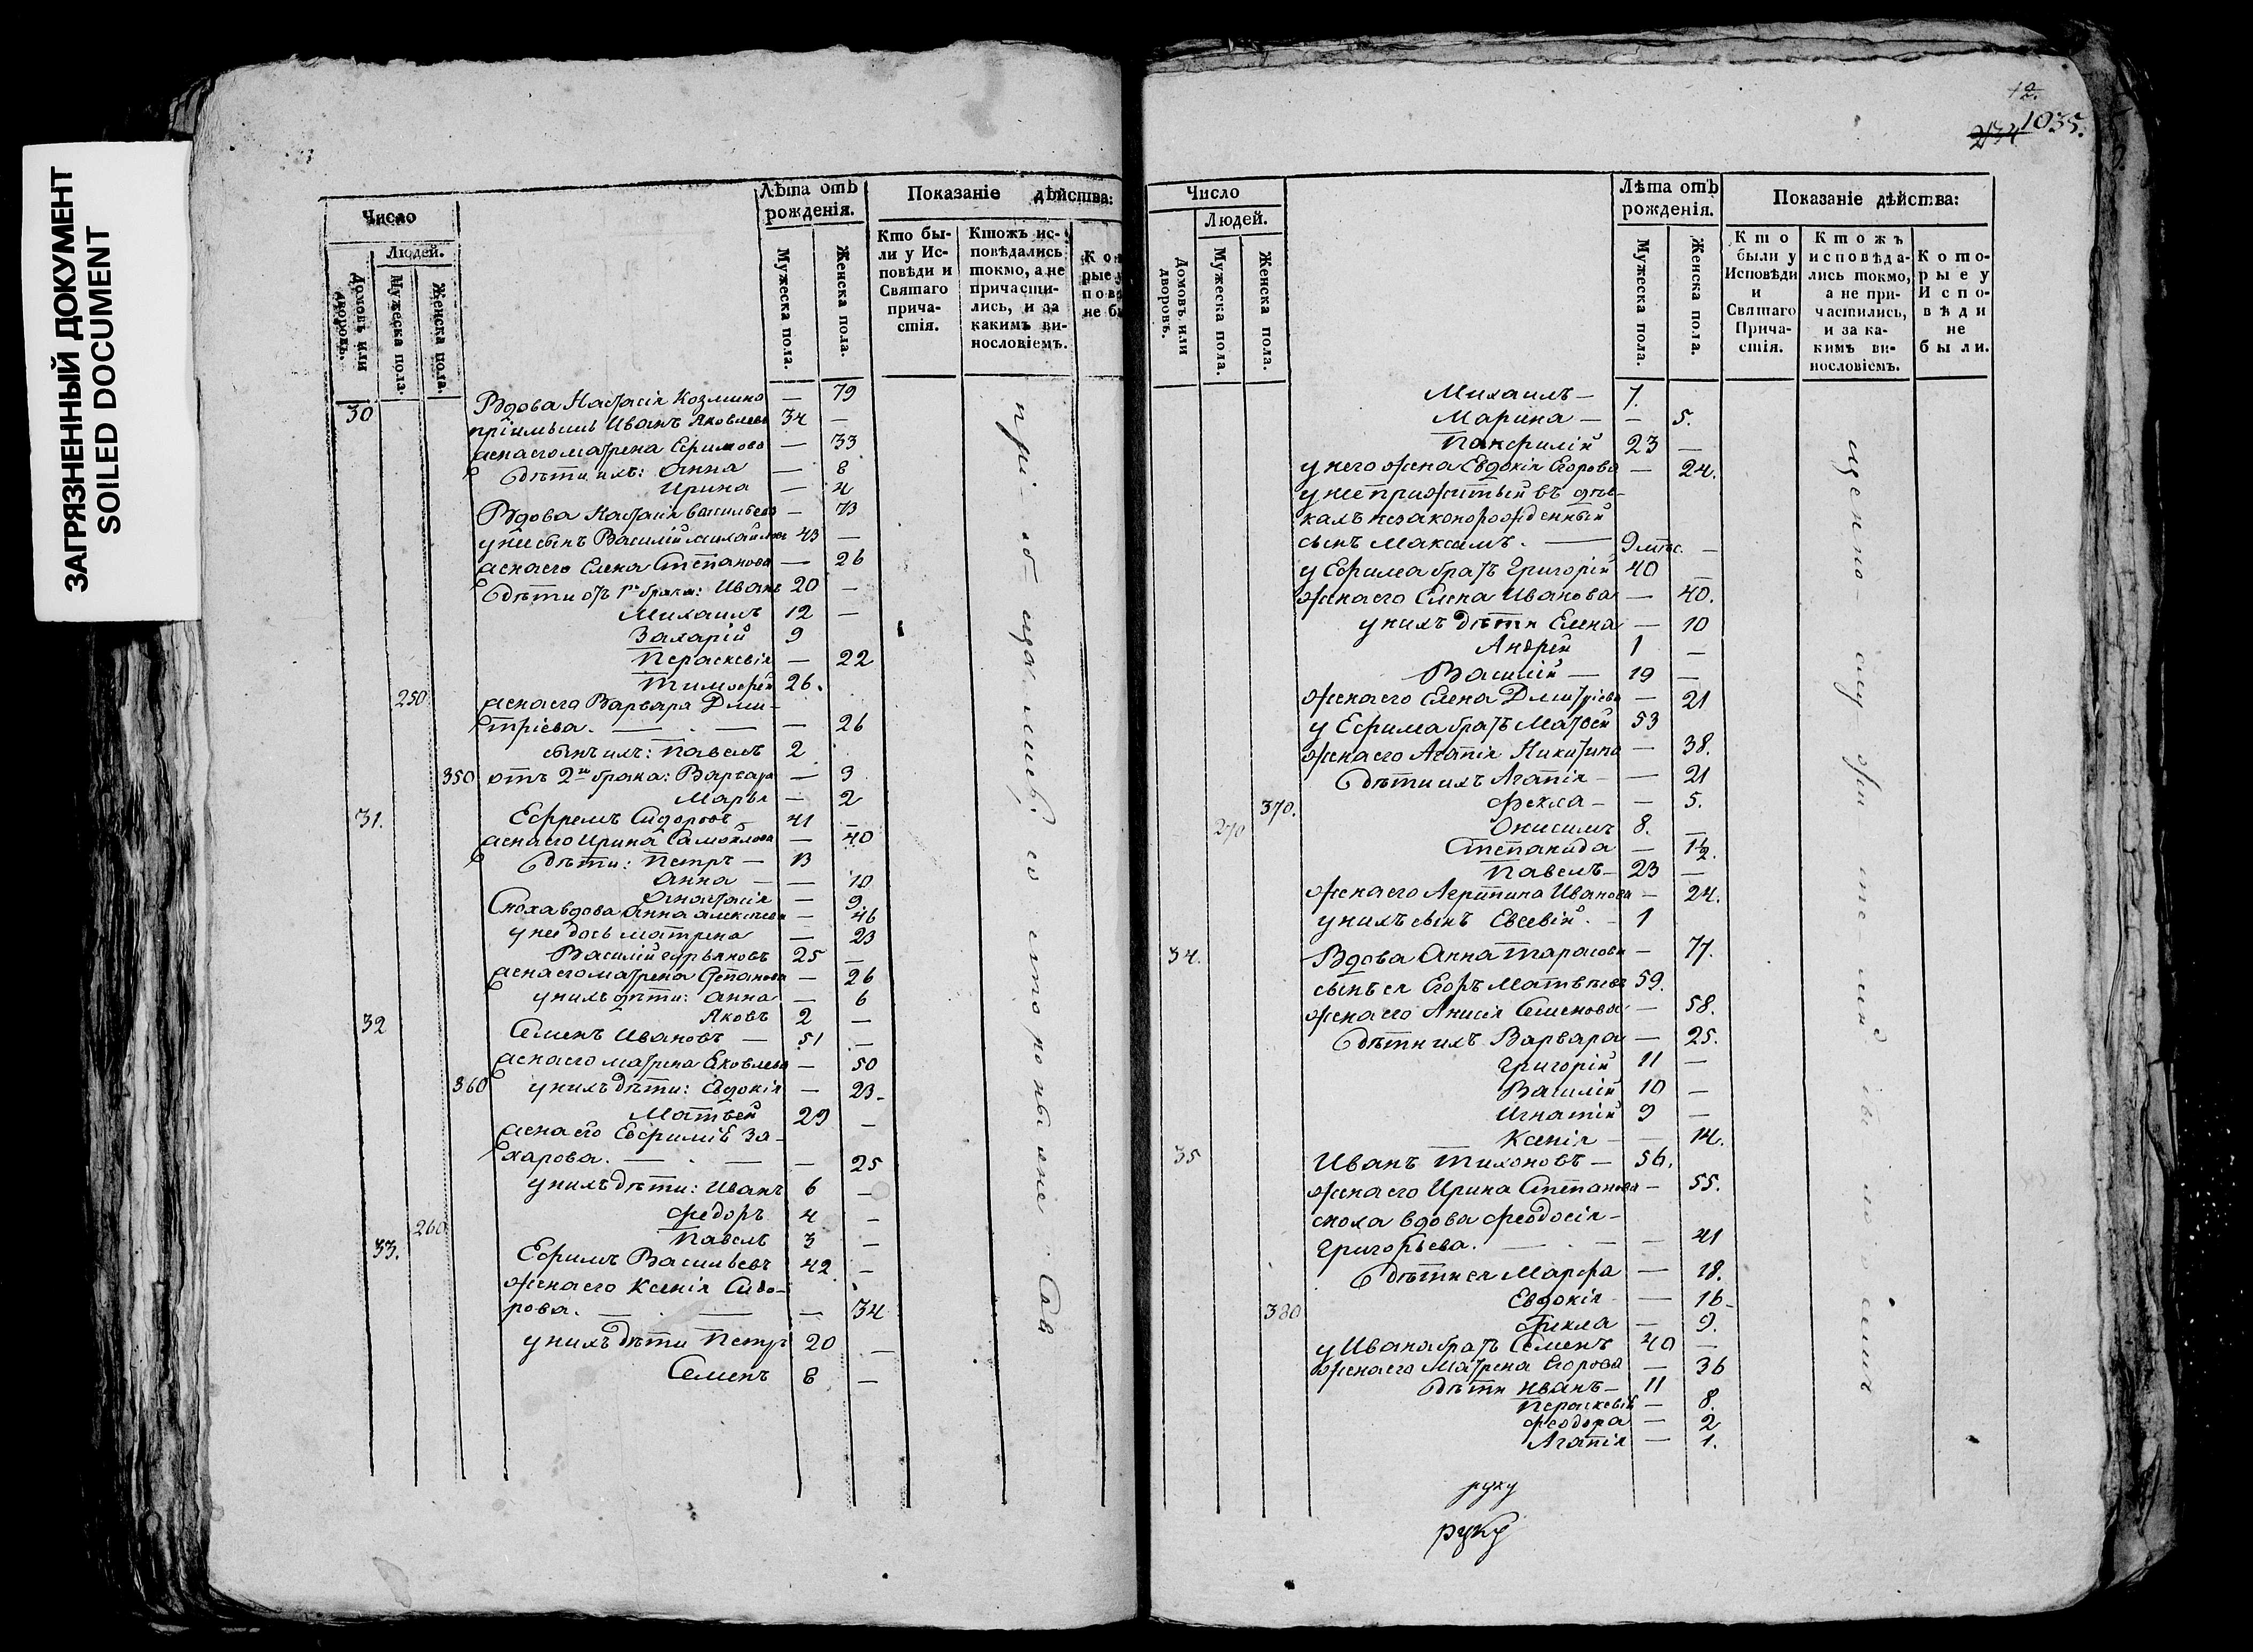 ЗАГРЯЗНЕННЫЙ ДОКУМЕНТ
SOILED DOCUMENT
Число
Людей.
Домовъ или дворовъ.
Мужеска пола.
Женска пола.
Лѣта отъ рожденія.
Мужеска пола.
Женска пола.
Показаніе дѣйства:
Кто бы-
ли у Ис-
повѣди и
Святаго
прича-
стія.
Ктожъ ис-
повѣдались
токмо, а не
причасти-
лись, и за
какимъ ви-
нословіемъ.
30 Вдова Настасія Козмина — 79
пріимышъ Иванъ Яковлевъ 34 —
жена его Матрена Ефимова — 33
дѣти ихъ: Анна — 8
Ирина — 4
Вдова Настасія Васильева — 73
у ней сынъ Василій Михайловъ 43 —
жена его Елена Степанова — 26
дѣти отъ 1го брака: Иванъ 20 —
Михаилъ 12 —
Захарій 9
Параскевія — 22
Тимофей 26.
250 жена его Варвара Дми-
тріева. — 26
сынъ ихъ: Павелъ 2
350 отъ 2го брака: Варвара — 3
Марья — 2
31. Ефремъ Сидоровъ 41 —
жена его Ирина Самойлова — 40
дѣти: Петръ — 13
Анна — 10
Анастасія — 9
Сноха вдова Анна Алексѣева — 46
у ней дочь Матрена — 23
Василій Гурьяновъ 25 —
жена его Матрена Степанова — 26
у нихъ дѣти: Анна — 6
Яковъ 2 —
32 Семенъ Ивановъ — 51 —
жена его Матрена Яковлева — 50
360 у нихъ дѣти: Евдокія — 23.
Матвей 29 —
жена его Евфимія За-
харова. — 25
у нихъ дѣти: Иванъ 6 —
Федоръ 4 —
260 Павелъ 3 —
33. Ефимъ Васильевъ 42 —
жена его Ксенія Сидо-
рова. — 34
у нихъ дѣти Петръ 20 —
Семенъ 8 —
1035.
Число
Людей.
Домовъ или дворовъ.
Мужеска пола.
Женска пола.
Лѣта отъ рожденія.
Мужеска пола.
Женска пола.
Показаніе дѣйства:
Кто
были у
Исповѣди
и
Святаго
Прича-
стія.
Ктожъ
исповѣда-
лись токмо,
а не при-
частились,
и за ка-
кимъ ви-
нословіемъ.
Кото-
рые у
Испо-
вѣди
не
были.
Михаилъ — 7.
Марина — — 5.
Панфилій 23 —
у него жена Евдокія Егорова — 24.
сынъ Максимъ. — 9 мѣс. —
у Ефима братъ Григорій 40 —
жена его Елена Иванова — 40.
у нихъ дѣти Елена — 10
Андрей 1 —
Василій — 19 —
жена его Елена Дмитріева — 21
у Ефима братъ Матвей 53
жена его Агапія Никитина — 38.
дѣти ихъ Агапія — — 21
370. Фекла — — 5.
270 Онисимъ 8. —
Степанида — 1½.
Павелъ — 23 —
жена его Агрипина Иванова — 24.
у нихъ сынъ Евсевій. — 1
34. Вдова Анна Тарасова — 77.
сынъ ея Егоръ Матвѣевъ 59.
жена его Анисія Семенова — 58.
дѣти ихъ Варвара — 25.
Григорій 11 —
Василій 10 —
Игнатій 9 —
Ксенія — — 14.
35 Иванъ Тихоновъ — 56.
жена его Ирина Степанова — 55.
сноха вдова Феодосія
Григорьева. — — 41
дѣти ея Марфа — 18.
Евдокія — 16
380 Фекла — 9.
у Ивана братъ Семенъ 40 —
жена его Матрена Егорова — 36
дѣти Иванъ — 11
Параскевія — 8.
Феодора — 2
Агапія — 1.
руку
руку